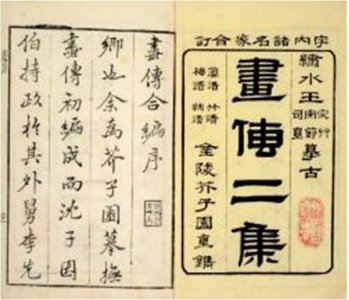 宇內諸名家合訂
繡水王
宓草
安節
司直
摹古
畫傳二集
蘭譜 竹譜
梅譜 菊譜
金陵芥子園重鐫
畫傳合編序
鄉也余為芥子園摹撫
畫傳初編成而沈子因
伯持政於其外舅李先